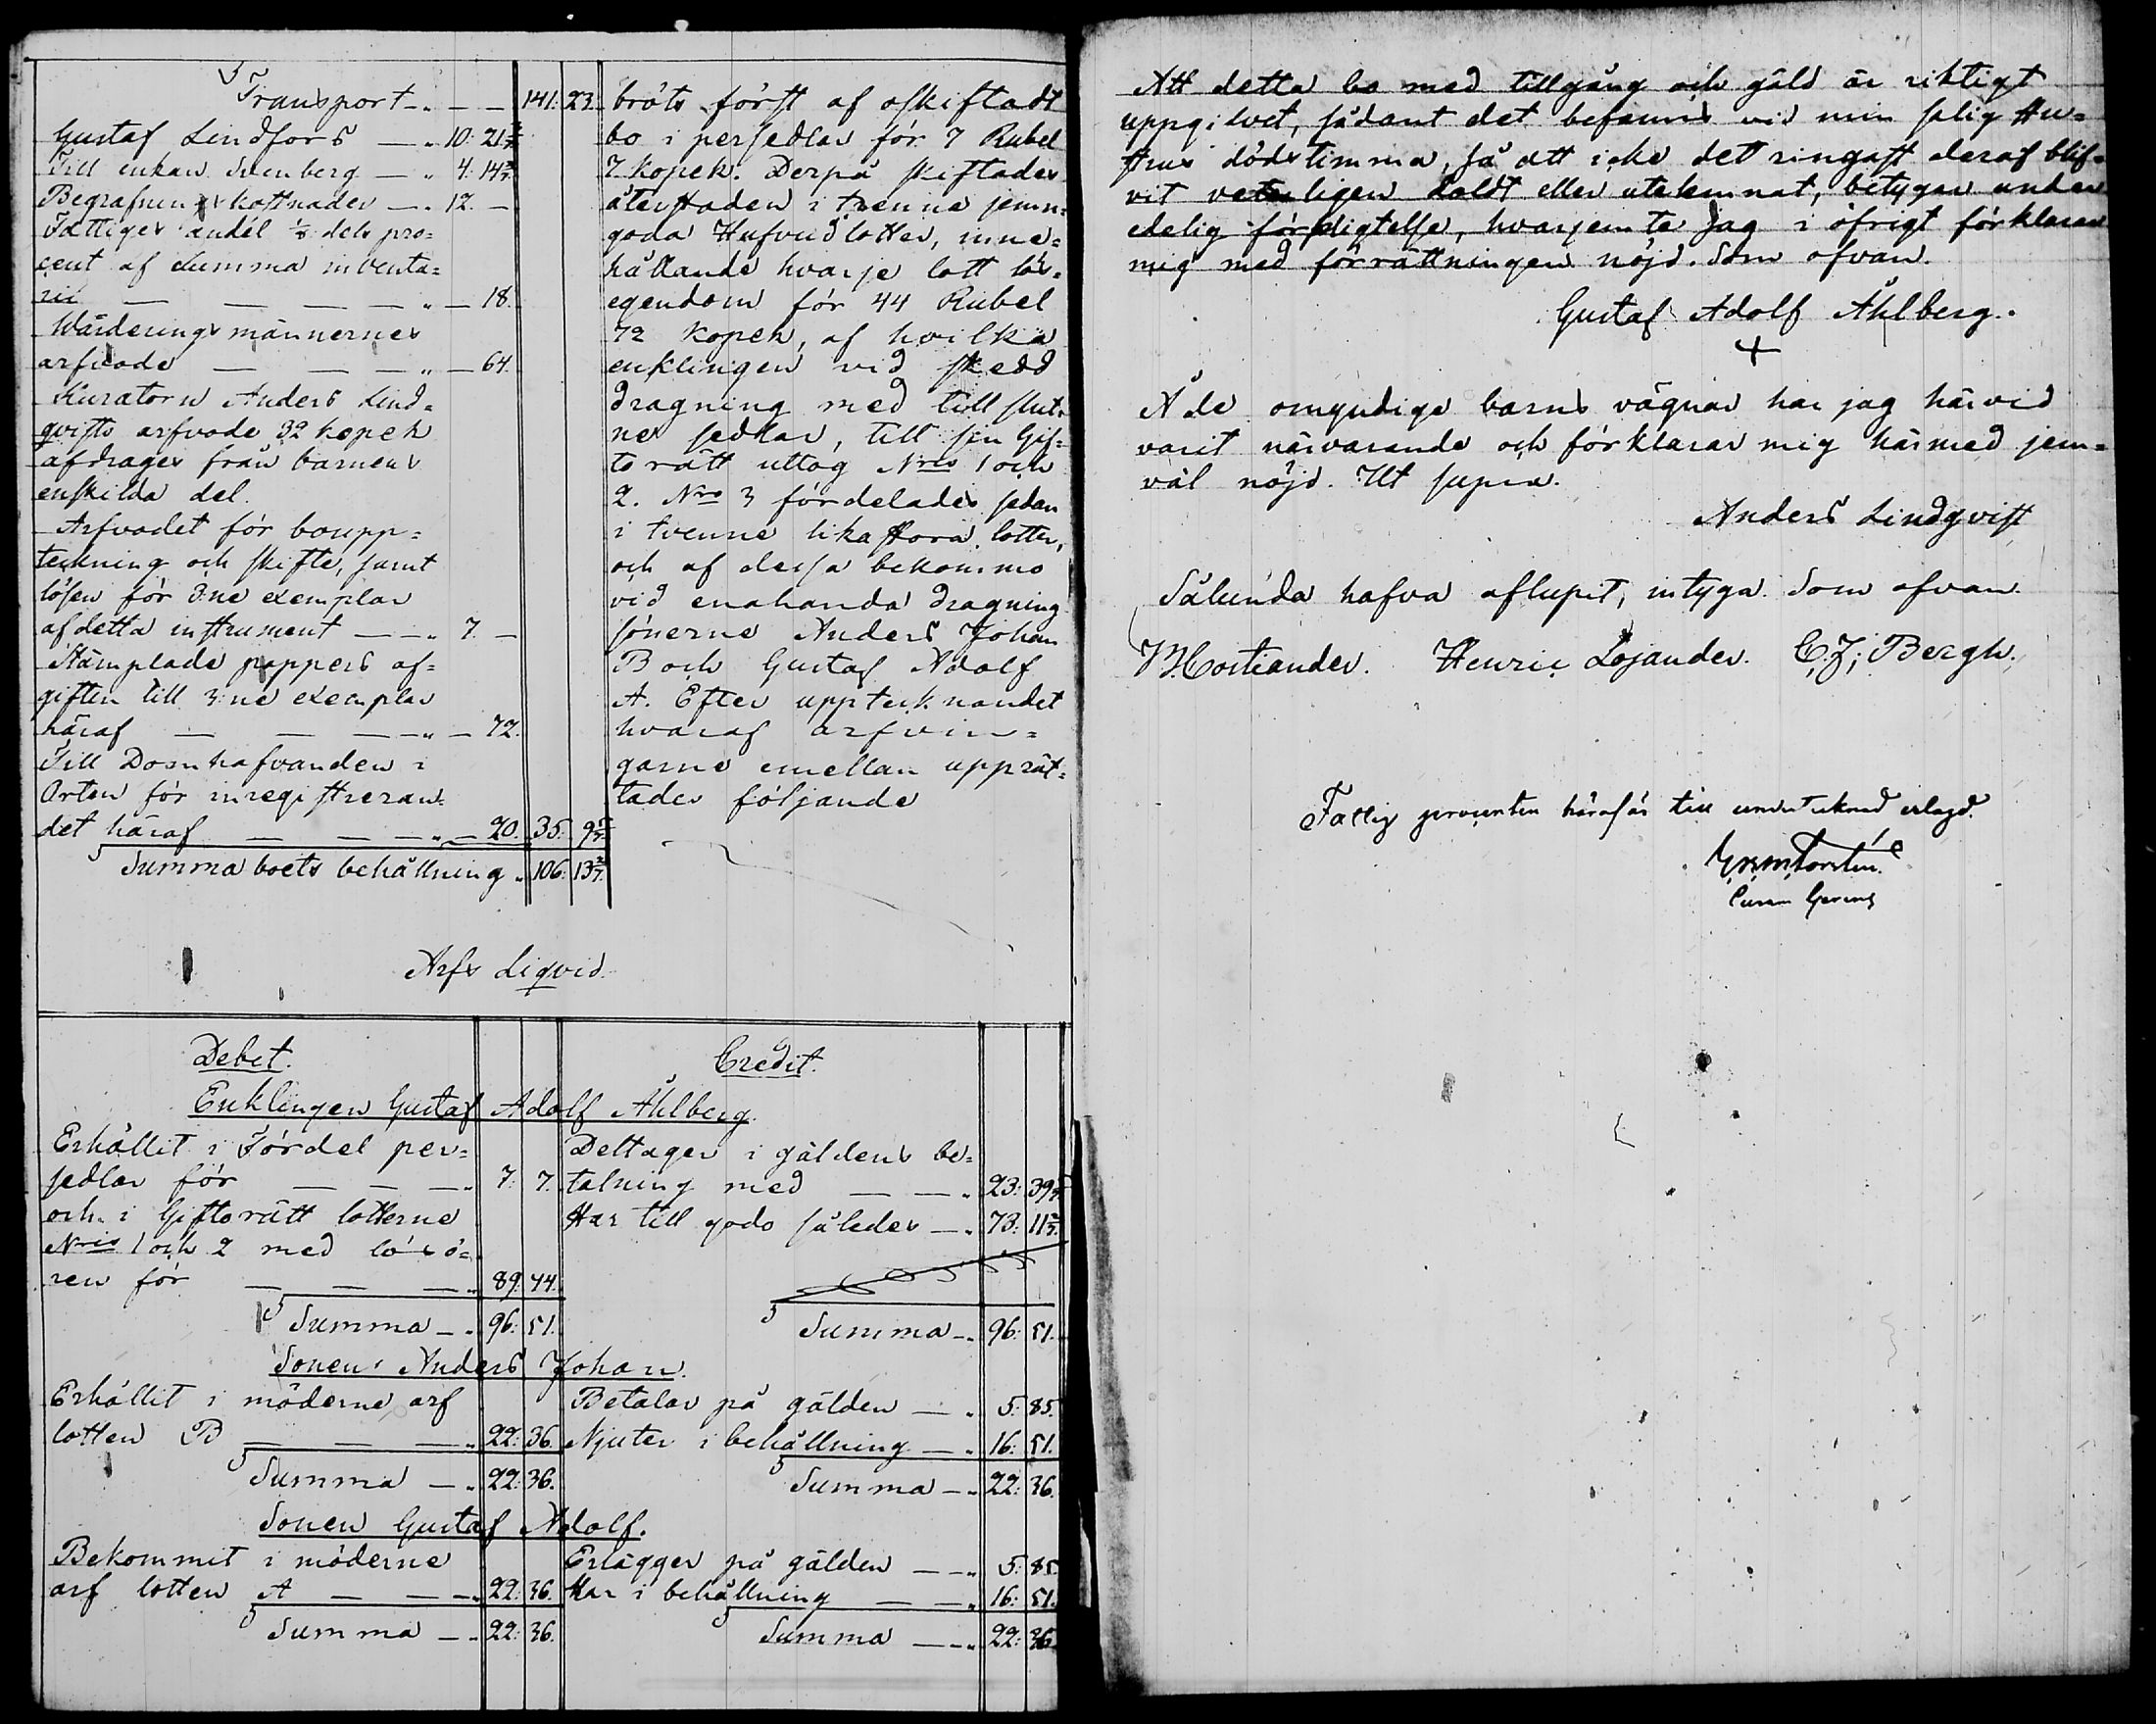 Transport — " — — 141: 23.
Gustaf Lindfors — " 10: 21 3/7
Till enkan Stenberg — " 4: 14 2/7
Begrafnings kostnader — " 12. —
Fattiges andel 1/8 dels pro=
cent af Summa inventa=
rii — — — — " — 18.
Wärderings männernes
arfvode — — — " — 64.
Kuratorn Anders Lind=
qvists arfvode 32 kopek
afdrages från barnens
enskilda del.
Arfvodet för boupp=
teckning och skifte, samt
lösen för 3:ne exemplar
af detta instrument — — " 7. —
Stämplade pappers af=
giften till 3:ne exemplar
häraf — — — — " — 72.
Till Domhafvanden i
Orten för inregistreran=
det häraf — — — " — 20. 35: 9 5/7
Summa boets behållning " 106: 13 2/7
bröts först af oskiftadt
bo i persedlar för 7 Rubel
7 kopek. Derpå skiftades
återstoden i trenne jemn=
goda Hufvudlotter, inne=
hållande hvarje lott lös=
egendom för 44 Rubel
72 kopek, af hvilka
enklingen vid skedd
dragning med till slut=
ne sedlar, till sin Gif=
to rätt uttog Nris 1 och
2. Nro 3 fördelades sedan
i tvenne lika stora lotter,
och af dessa bekommo
vid enahanda dragning
sönerne Anders Johan
B och Gustaf Adolf
A. Efter upptecknandet
hvaraf arfvin=
garne emellan upprät=
tades följande
Arfs Liqvid.
Debet. Credit.
Enklingen Gustaf Adolf Åhlberg.
Erhållit i Fördel per=
sedlar för — — — " 7: 7.
och i Giftorätt lotterne
Nris 1 och 2 med lösö=
ren för — — — " 89: 44.
Summa — " 96: 51.
Deltager i gäldens be=
talning med — — " 23: 39 5/7
Har till godo således — " 73: 11 2/7
Summa — " 96: 51.
Sonen Anders Johan.
Erhållit i möderne arf
lotten B — — — " 22: 36.
Summa — " 22: 36.
Betalar på gälden — " 5: 85.
Njuter i behållning — " 16: 51.
Summa — " 22: 36.
Sonen Gustaf Adolf.
Bekommit i möderne
arf lotten A — — — " 22: 36.
Summa — " 22: 36.
Erlägger på gälden — " 5: 85.
Har i behållning — — " 16: 51.
Summa — " 22: 36.
Att detta bo med tillgång och gäld är riktigt
uppgifvet, sådant det befanns vid min salig Hu=
strus dödstimma, så att icke det ringaste deraf blif=
vit veterligen doldt eller utelemnat, betygar under
edelig förpligtelse, hvarjemte jag i öfrigt förklarar
mig med förrättningen nöjd. Som ofvan.
Gustaf Adolf Åhlberg.
+
Å de omyndige barns vägnar har jag härvid
varit närvarande och förklarar mig härmed jem=
väl nöjd. Ut supra.
Anders Lindqvist
Sålunda hafva aflupit, intyga. Som ofvan.
Costiander. Henric Lojander. C. J. Bergh.
Fattig procenten häraf är till undertecknad erlagd.